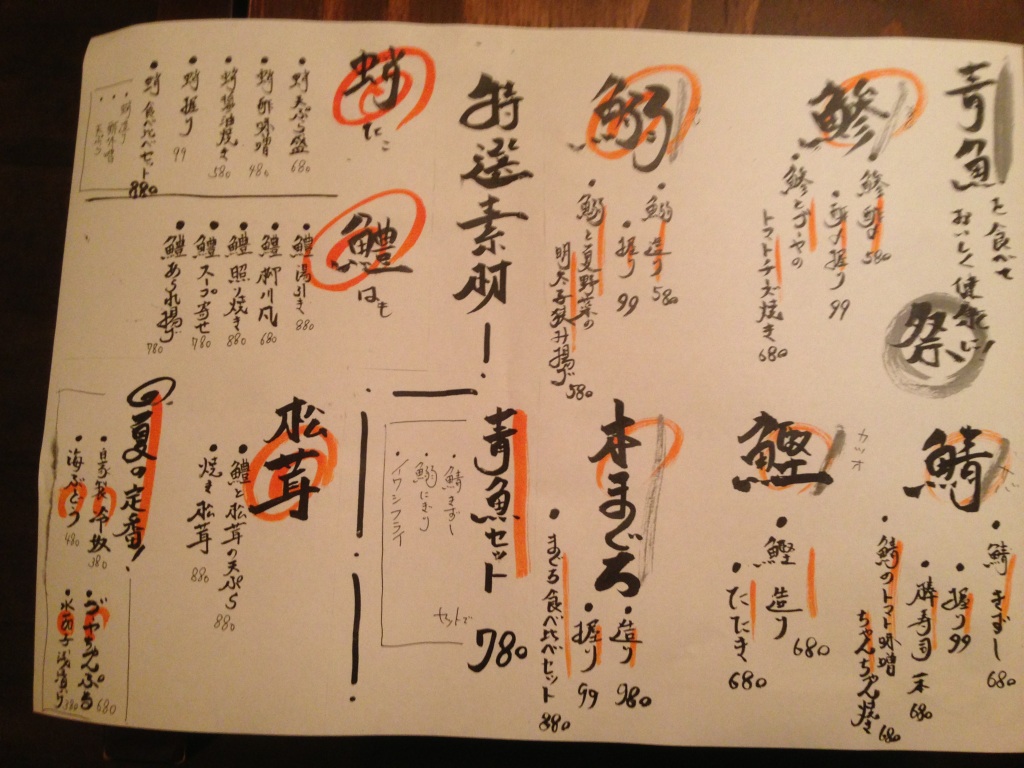 青魚を食べて
おいしく健康に!
祭
鯵
鯵酢〆 580
鯵握り 99
鯵とゴーヤの
トマトチーズ焼き 680
鰯
鰯造り 580
握り 99
鰯と夏野菜の
明太子挟み揚げ 580
鯖
鯖きずし 680
握り 99
棒寿司一本 680
鯖のトマト味噌
ちゃんちゃん焼き 680
鰹
カツオ
鰹造り 680
たたき 680
本まぐろ
造り 980
握り 99
まぐろ食べ比べセット 880
青魚セット 780
鯖きずし
鰯にぎり
イワシフライ
セットで
特選素材ー!
蛸
たこ
蛸天ぷら盛 680
蛸酢味噌 480
蛸醤油焼き 580
蛸握り 99
蛸食べ比べセット 880
鱧
はも
鱧湯引き 880
鱧柳川風 680
鱧照焼き 880
鱧スープ寄せ 780
鱧あられ揚げ 780
松茸
鱧と松茸の天ぷら 880
焼き松茸 880
の夏の定番!
自家製冷奴 380
海ぶどう 480
ゴーヤちゃんぷる 680
水茄子浅漬け